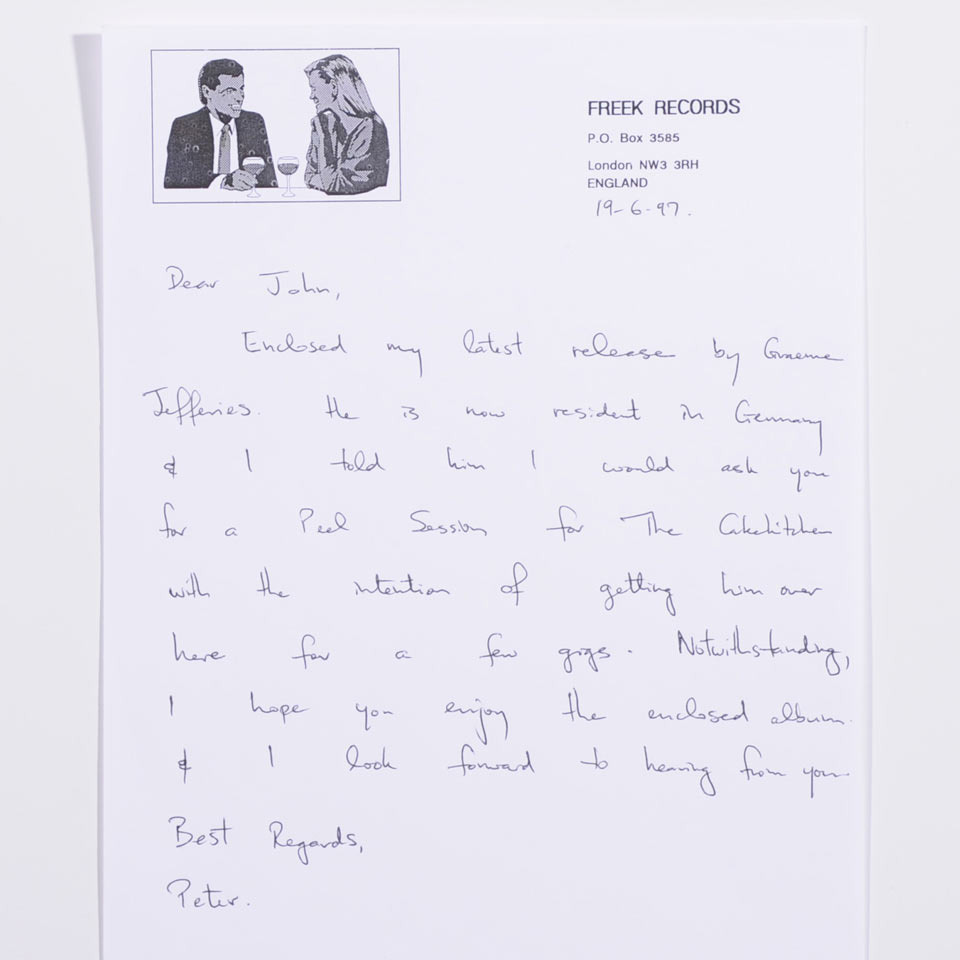 FREEK RECORDS
P.O. Box 3585
London NW3 3RH
ENGLAND
19-6-97.
Dear John,
Enclosed my latest release by Graeme
Jefferies. He is now resident in Germany
& I told him I would ask you
for a Peel Session for The Cakekitchen
with the intention of getting him over
here for a few gigs. Notwithstanding,
I hope you enjoy the enclosed album
& I look forward to hearing from you
Best Regards,
Peter.